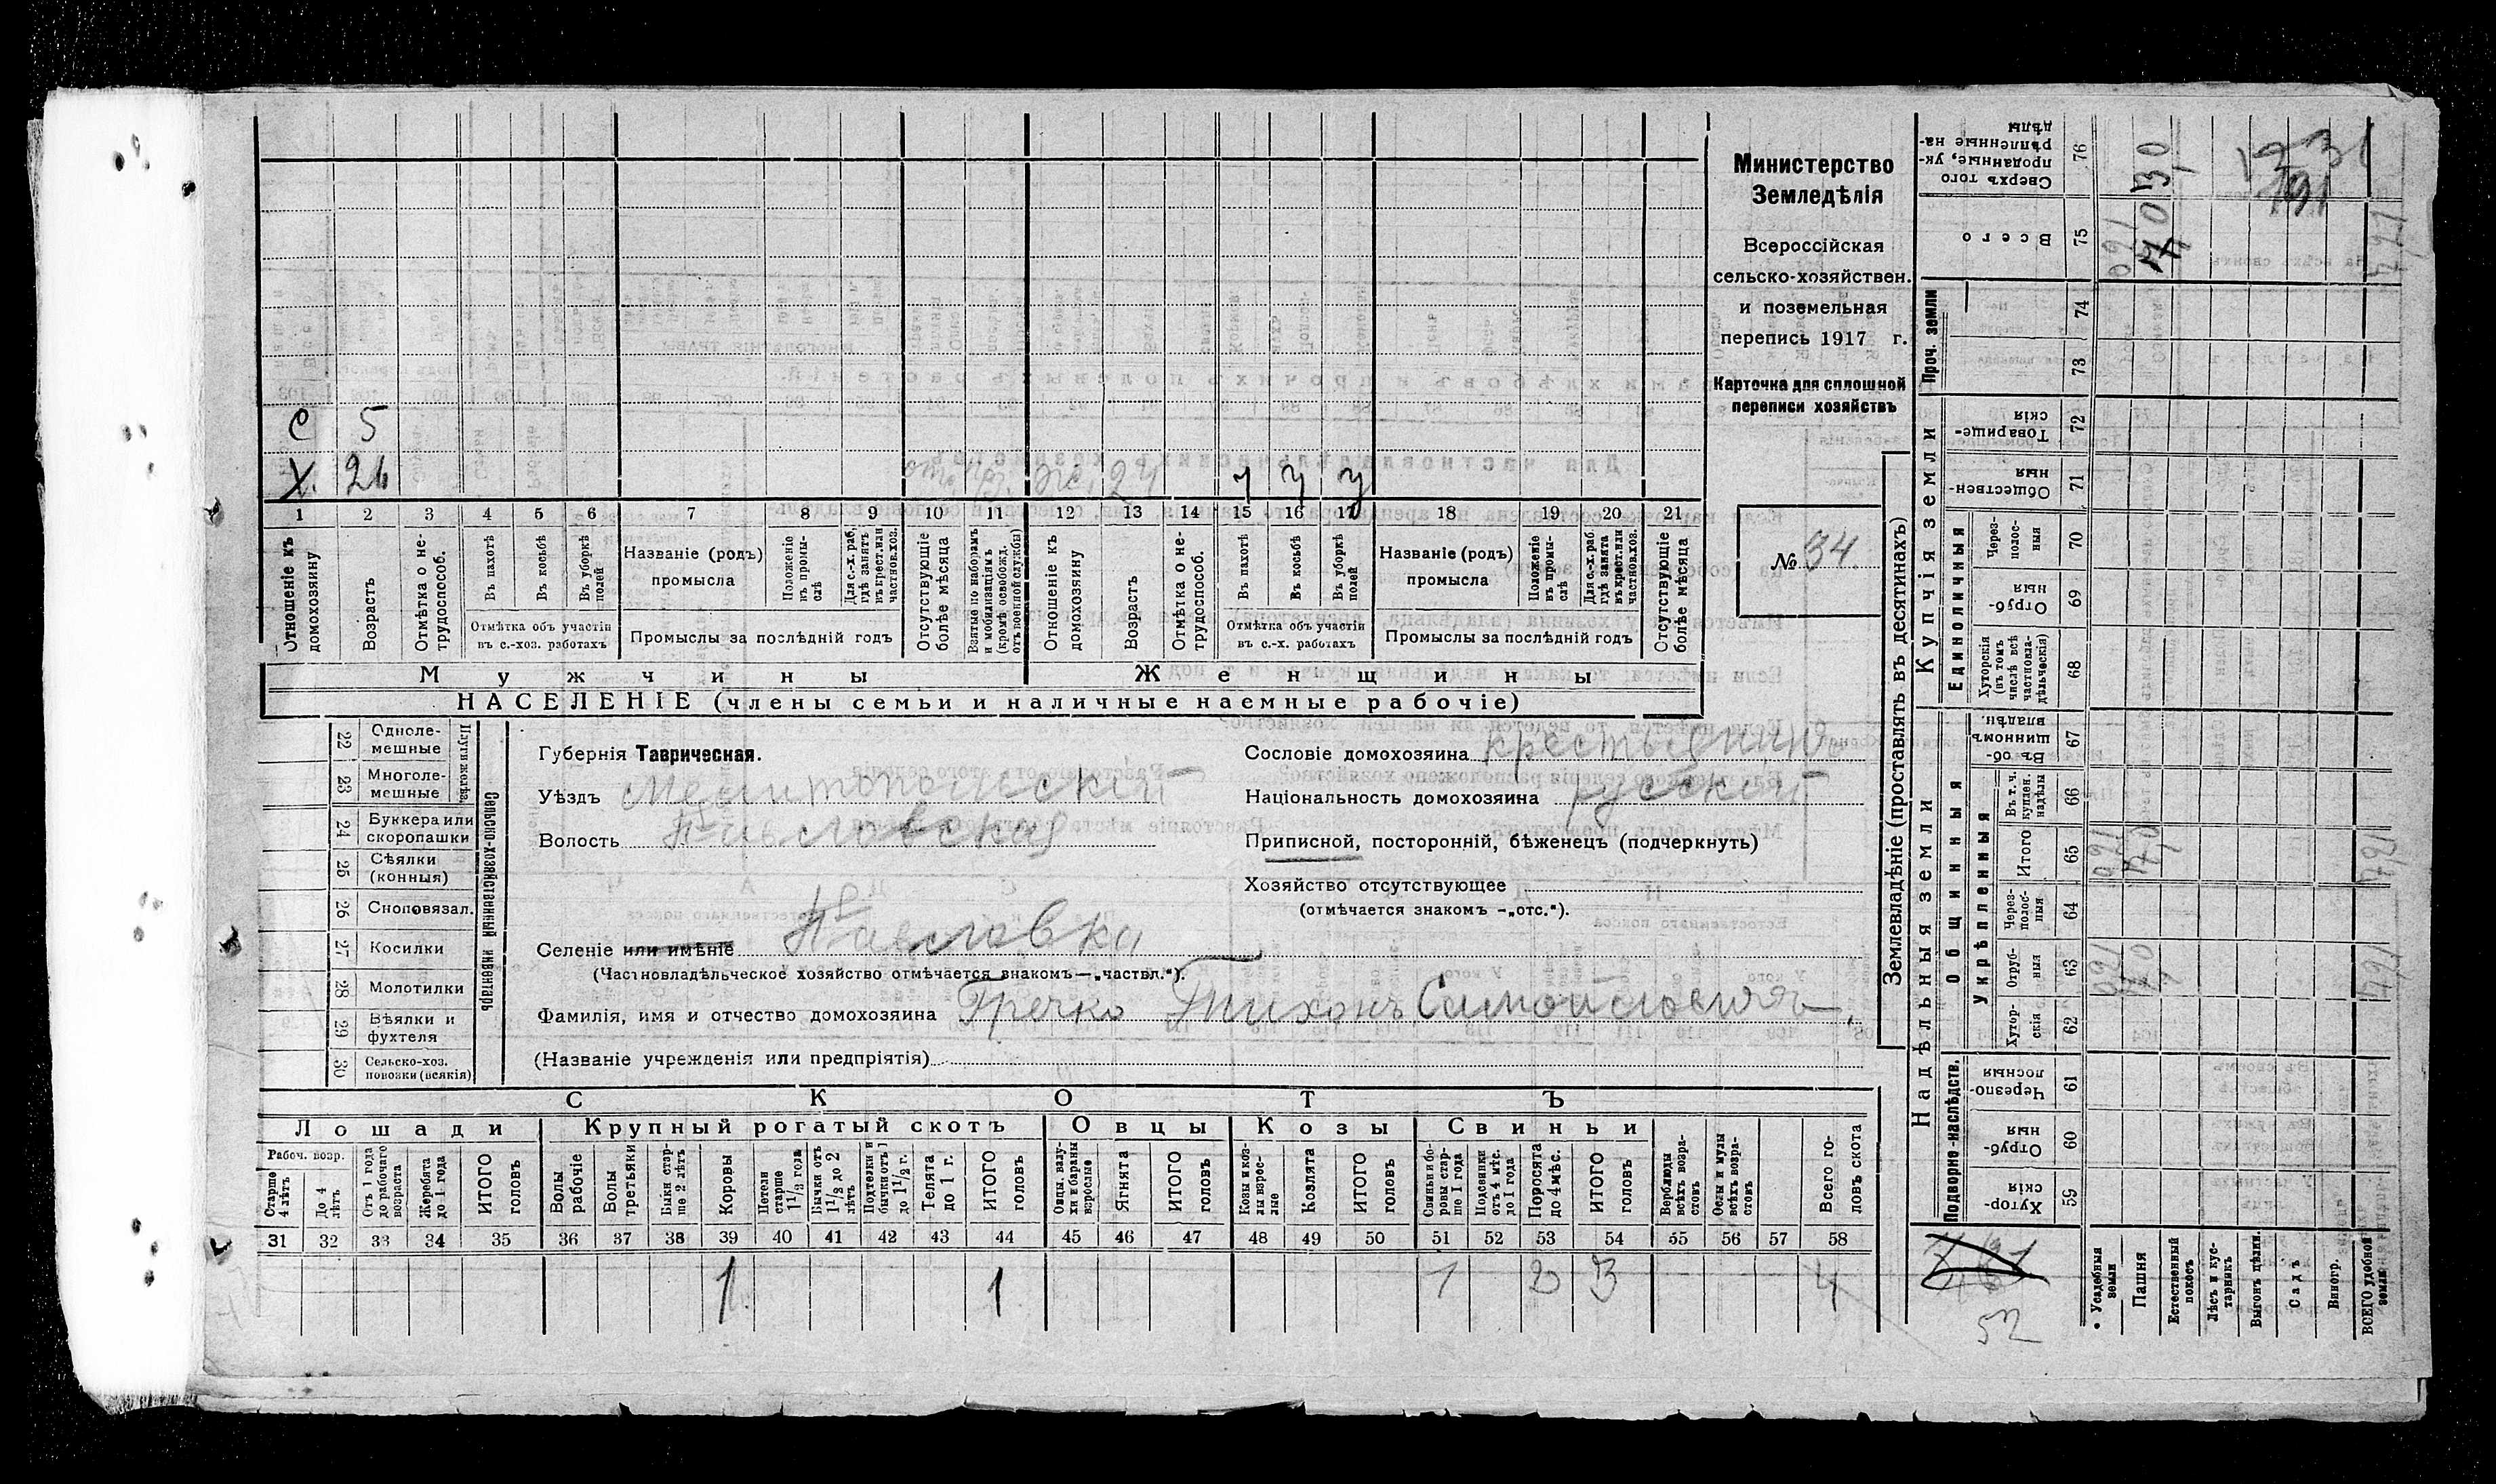 С 5
Х. 26 отс. ж. 24 у у у
1 2 3 4 5 6 7 8 9 10 11 12 13 14 15 16 17 18 19 20 21
Отношеніе къ домохозяину
Возрастъ
Отмѣтка о не-трудоспособ.
Въ пахотѣ
Въ косьбѣ
Въ уборкѣ полей
Отмѣтка объ участіи
въ с.-хоз. работахъ
Названіе (родъ)
промысла
Положеніе къ промы-слѣ
Для с.-х. раб. гдѣ занятъ въ крест. или частнов. хоз.
Промыслы за послѣдній годъ
Отсутствующіе болѣе мѣсяца
Взятые по наборамъ и мобилизаціямъ (кромѣ освобожд. отъ военной службы)
Отношеніе къ домохозяину
Возрастъ
Отмѣтка о не-трудоспособ.
Въ пахотѣ
Въ косьбѣ
Въ уборкѣ полей
Отмѣтка объ участіи
въ с.-х. работахъ
Названіе (родъ)
промысла
Положеніе въ промы-слѣ
Для с.-х. раб. гдѣ занята въ крест. или частнов. хоз.
Промыслы за послѣдній годъ
Отсутствующіе болѣе мѣсяца
Мужчины Женщины
НАСЕЛЕНІЕ (члены семьи и наличные наемные рабочіе)
Министерство
Земледѣлія
Всероссійская
сельско-хозяйствен.
и поземельная
перепись 1917 г.
Карточка для сплошной
переписи хозяйствъ
№ 34.
22 Однолемешные
23 Многолемешные
Плуги желѣз.
24 Буккера или скоропашки
25 Сѣялки (конныя)
26 Сноповязал.
27 Косилки
28 Молотилки
29 Вѣялки и фухтеля
30 Сельско-хоз. повозки (всякія)
Сельско-хозяйственный инвентарь
Губернія Таврическая.
Уѣздъ Мелитопольскій
Волость Павловская
Селеніе или имѣніе Павловка
(Частновладѣльческое хозяйство отмѣчается знакомъ—„частвл.“).
Фамилія, имя и отчество домохозяина Гречко Тихонъ Самойловичъ
(Названіе учрежденія или предпріятія)
Сословіе домохозяина крестьянинъ
Національность домохозяина русскій
Приписной, посторонній, бѣженецъ (подчеркнуть)
Хозяйство отсутствующее
(отмѣчается знакомъ -„отс.“).
СКОТЪ
Лошади Крупный рогатый скотъ Овцы Козы Свиньи
Рабоч. возр.
Старше 4 лѣтъ
До 4 лѣтъ
Отъ 1 года до рабочаго возраста
Жеребята до 1 года
ИТОГО головъ
Волы рабочіе
Волы третьяки
Быки старше 2 лѣтъ
Коровы
Нетели старше 1 1/2 года
Бычки отъ 1 1/2 до 2 лѣтъ
Подтелки и бычки отъ 1 до 1 1/2 г.
Телята до 1 г.
ИТОГО головъ
Овцы, валухи и бараны взрослые
Ягнята
ИТОГО головъ
Козы и козлы взрослые
Козлята
ИТОГО головъ
Свиньи и боровы старше 1 года
Подсвинки отъ 4 мѣс. до 1 года
Поросята до 4 мѣс.
ИТОГО головъ
Верблюды всѣхъ возрастовъ
Ослы и мулы всѣхъ возрастовъ
Всего головъ скота
31 32 33 34 35 36 37 38 39 40 41 42 43 44 45 46 47 48 49 50 51 52 53 54 55 56 57 58
1 1 1 2 3 4
Землевладѣніе (проставлять въ десятинахъ)
Надѣльныя земли
Купчія земли
Проч. земли
Подворно-наслѣдств.
Общинныя
Укрѣпленныя
Единоличныя
Сверхъ того проданные, укрѣпленные надѣлы 76
Всего 75
74
73
Товарищескія 72
Общественныя 71
Черезполосныя 70
Отрубныя 69
Хуторскія (въ томъ числѣ всѣ частновладѣльческія) 68
Въ общинномъ владѣн. 67
Въ т. ч. куплен. надѣлы 66
Итого 65
Черезполосныя 64
Отрубныя 63
Хуторскія 62
Черезполосныя 61
Отрубныя 60
Хуторскія 59
52
Усадебныя земли
Пашня
Естественный покосъ
Лѣсъ и кустарникъ
Выгонъ цѣлин.
Садъ
Виногр.
ВСЕГО удобной земли